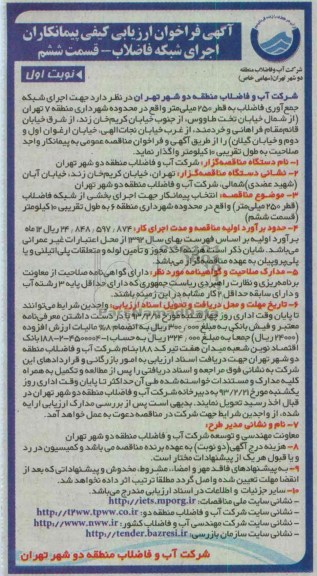 آگهی فراخوان ارزیابی کیفی پیمانکاران
اجرای شبکه فاضلاب – قسمت ششم
نوبت اول
شرکت آب و فاضلاب منطقه
دو شهر تهران (سهامی خاص)
شرکت آب و فاضلاب منطقه دو شهر تهران در نظر دارد جهت اجرای شبکه
جمع‌آوری فاضلاب به قطر ۲۵۰ میلی‌متر واقع در محدوده شهرداری منطقه ۷ تهران
(از شمال خیابان تخت طاووس، از جنوب خیابان کریم‌خان زند، از شرق خیابان
قائم‌مقام فراهانی و خردمند، از غرب خیابان نجات‌الهی، خیابان ارغوان اول و
دوم و خیابان گیلان) را از طریق آگهی و فراخوان مناقصه عمومی به پیمانکار واجد
صلاحیت به طول تقریبی ۱۰ کیلومتر واگذار نماید.
۱- نام دستگاه مناقصه‌گزار: شرکت آب و فاضلاب منطقه دو شهر تهران
۲- نشانی دستگاه مناقصه‌گزار: تهران، خیابان کریم‌خان زند، خیابان آبان
(شهید عضدی) شمالی، شرکت آب و فاضلاب منطقه دو شهر تهران
۳- موضوع مناقصه: انتخاب پیمانکار جهت اجرای بخشی از شبکه فاضلاب
(قطر ۲۵۰ میلی‌متر) واقع در محدوده شهرداری منطقه ۶ به طول تقریبی ۱۰ کیلومتر
(قسمت ششم)
۴- حدود برآورد اولیه مناقصه و مدت اجرای کار: ۲۴٫۸۴۸٫۵۹۷٫۸۷۴ ریال ۱۲ ماه
برآورد اولیه بر اساس فهرست بهای سال ۱۳۹۲ از محل اعتبارات غیر عمرانی
می‌باشد. شایان ذکر است هزینه اخذ مجوز و تأمین لوله و متعلقات پلی‌اتیلنی و یا
پلی‌پروپیلن به عهده مناقصه‌گزار می‌باشد.
۵- مدارک صلاحیت و گواهینامه مورد نظر: دارای گواهی‌نامه صلاحیت از معاونت
برنامه‌ریزی و نظارت راهبردی ریاست جمهوری که دارای حداقل پایه ۳ رشته آب
و دارای سابقه حداقل ۲ کار مشابه در این زمینه باشند.
۶- تاریخ مهلت و محل دریافت و تحویل اسناد ارزیابی: واجدین شرایط می‌توانند
تا پایان وقت اداری روز چهارشنبه مورخ با در دست داشتن معرفی‌نامه
معتبر و فیش بانکی به مبلغ ۳۰۰٫۰۰۰ ریال به انضمام ۸% مالیات ارزش افزوده
(۲۴۰۰۰ ریال) جمعاً به مبلغ ۳۲۴٫۰۰۰ ریال به حساب بانک
اقتصاد نوین شعبه میدان هفت تیر کد ۱۸۸ بنام شرکت آب و فاضلاب منطقه
دو شهر تهران جهت دریافت اسناد ارزیابی به امور بازرگانی و قراردادهای این
شرکت به نشانی فوق مراجعه و اسناد دریافتی را پس از مطالعه و تکمیل به همراه
کلیه مدارک و مستندات خواسته شده فی آن حداکثر تا پایان وقت اداری روز
یکشنبه مورخ ۹۳/۲/۲۱ به دبیرخانه شرکت آب و فاضلاب منطقه دو شهر تهران در
قبال اخذ رسید تحویل نمایند. بدیهی است پس از بررسی مدارک ارزیابی ارایه
شده، از واجدین شرایط جهت شرکت در مناقصه دعوت به عمل خواهد آمد.
۷- نام و نشانی مدیر طرح:
معاونت مهندسی و توسعه شرکت آب و فاضلاب منطقه دو شهر تهران
۸- هزینه درج آگهی (دو نوبت) به عهده برنده مناقصه می‌باشد و کمیسیون در رد
و یا قبول هر یک از پیشنهادات مختار است.
۹- به پیشنهادهای فاقد مهر و امضاء، مشروط، مخدوش و پیشنهاداتی که بعد از
انقضا مهلت تعیین شده واصل گردد مطلقاً ترتیب اثر داده نخواهد شد.
۱۰- سایر جزئیات و اطلاعات در اسناد ارزیابی مندرج می‌باشد.
- نشانی سایت ملی مناقصات: http://iets.mporg.ir
- نشانی سایت شرکت آب و فاضلاب منطقه دو: http://t2ww.tpww.co.ir
- نشانی سایت شرکت مهندسی آب و فاضلاب کشور: http://www.nww.ir
- نشانی سایت سازمان بازرسی: http://tender.bazresi.ir
شرکت آب و فاضلاب منطقه دو شهر تهران